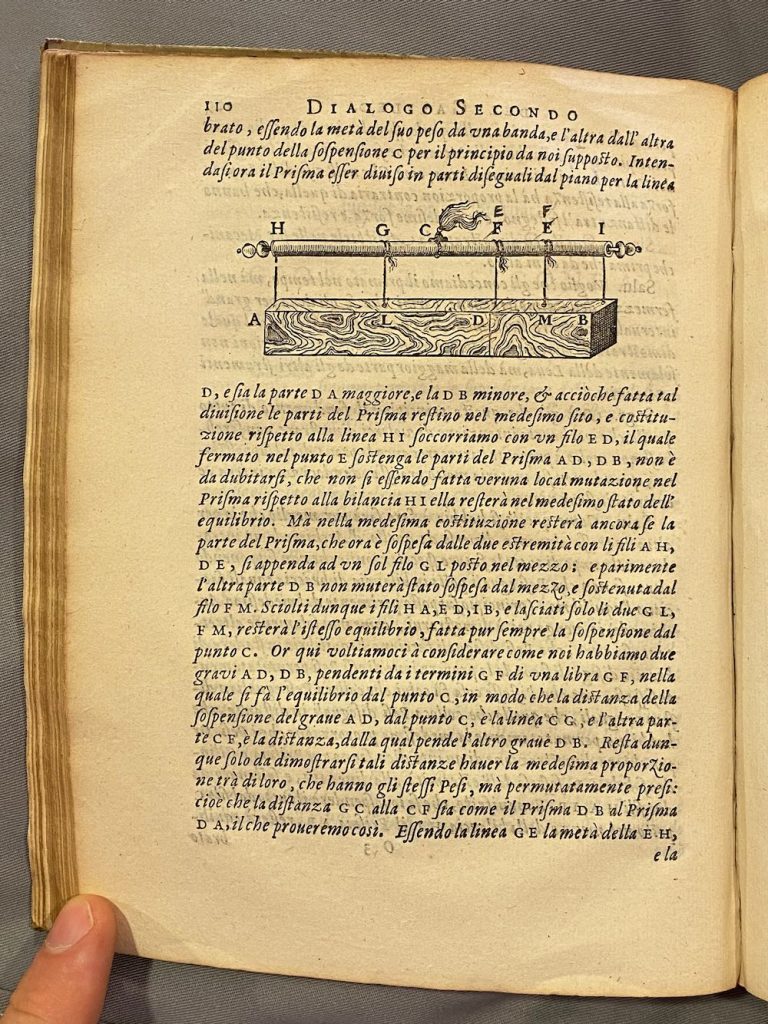 110 DIALOGO SECONDO
brato, essendo la metà del suo peso da vna banda, e l'altra dall'altra
del punto della sospensione C per il principio da noi supposto. Inten-
dasi ora il Prisma esser diuiso in parti diseguali dal piano per la linea
E F
H G C F E I
A L D M B
D, e sia la parte D A maggiore, e la D B minore, & acciòche fatta tal
diuisione le parti del Prisma restino nel medesimo sito, e costitu-
zione rispetto alla linea H I soccorriamo con vn filo E D, il quale
fermato nel punto E sostenga le parti del Prisma A D, D B, non è
da dubitarsi, che non si essendo fatta veruna local mutazione nel
Prisma rispetto alla bilancia H I ella resterà nel medesimo stato dell'
equilibrio. Mà nella medesima costituzione resterà ancora se la
parte del Prisma, che ora è sospesa dalle due estremità con li fili A H,
D E, si appenda ad vn sol filo G L posto nel mezzo: e parimente
l'altra parte D B non muterà stato sospesa dal mezzo, e sostenuta dal
filo F M. Sciolti dunque i fili H A, E D, I B, e lasciati solo li due G L,
F M, resterà l'istesso equilibrio, fatta pur sempre la sospensione dal
punto C. Or qui voltiamoci à considerare come noi habbiamo due
graui A D, D B, pendenti da i termini G F di vna libra G F, nella
quale si fà l'equilibrio dal punto C, in modo che la distanza della
sospensione del graue A D, dal punto C, è la linea C G, e l'altra par-
te C F, è la distanza, dalla qual pende l'altro graue D B. Resta dun-
que solo da dimostrarsi tali distanze hauer la medesima proporzio-
ne trà di loro, che hanno gli stessi Pesi, mà permutatamente presi:
cioè che la distanza G C alla C F sia come il Prisma D B al Prisma
D A, il che proueremo così. Essendo la linea G E la metà della E H,
e la